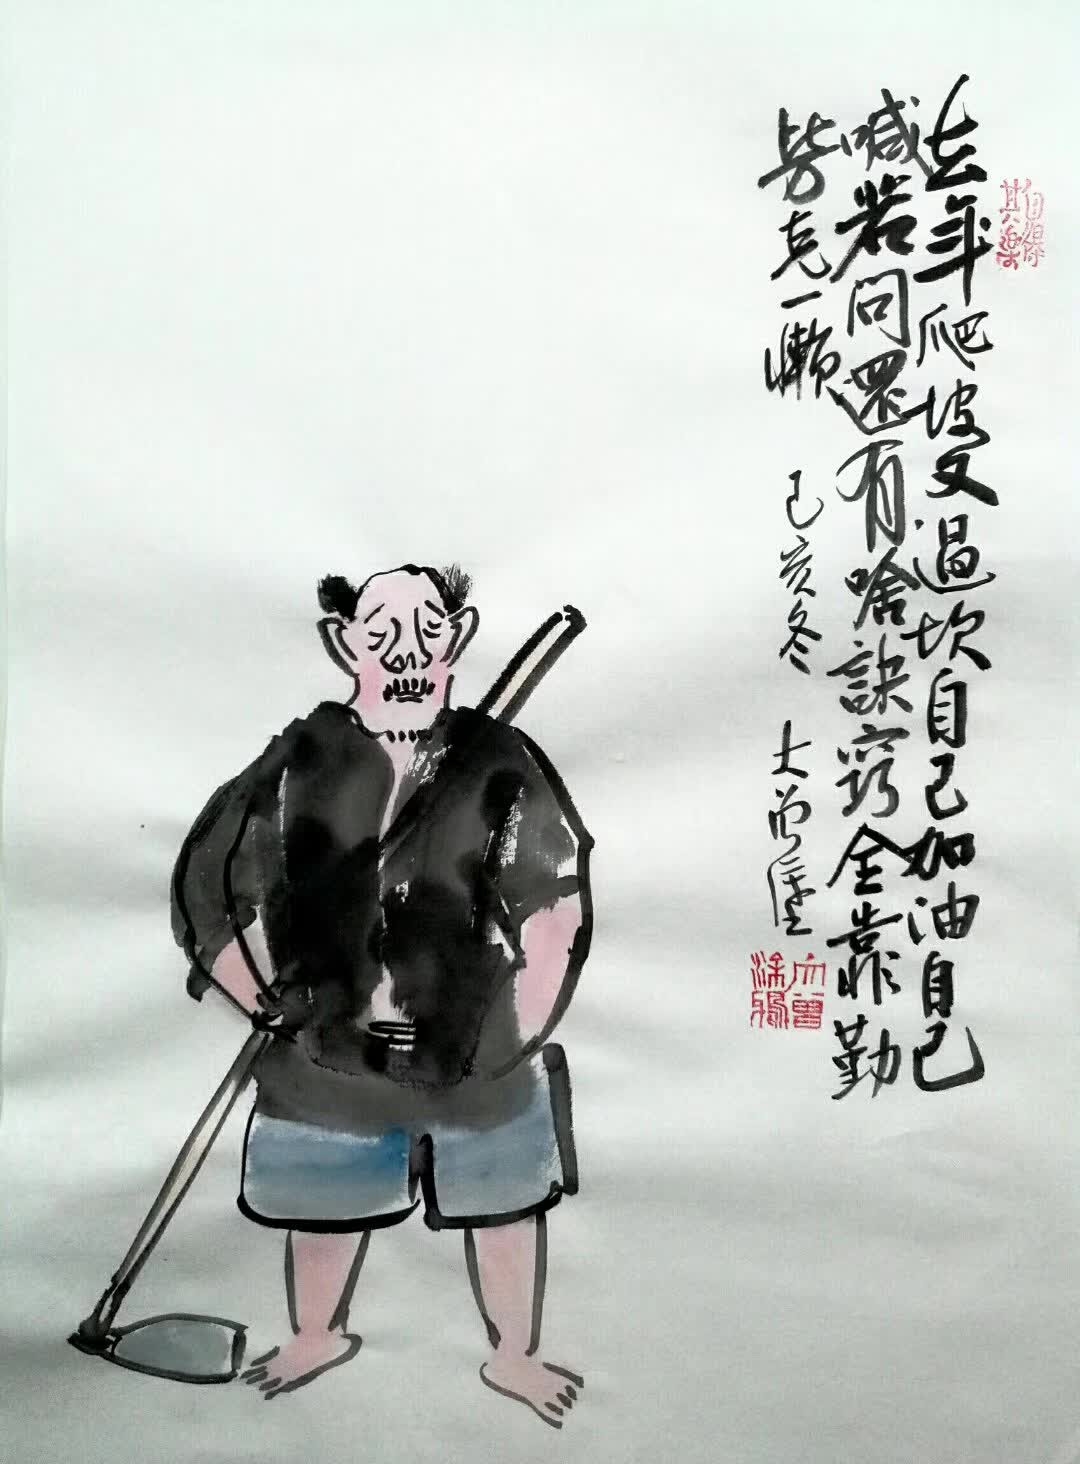 自得
其樂
去年爬坡又過坎自己加油自己
喊若问還有啥訣窍全靠勤
劳克一懒 己亥冬 大曾
大曾
涂鴉